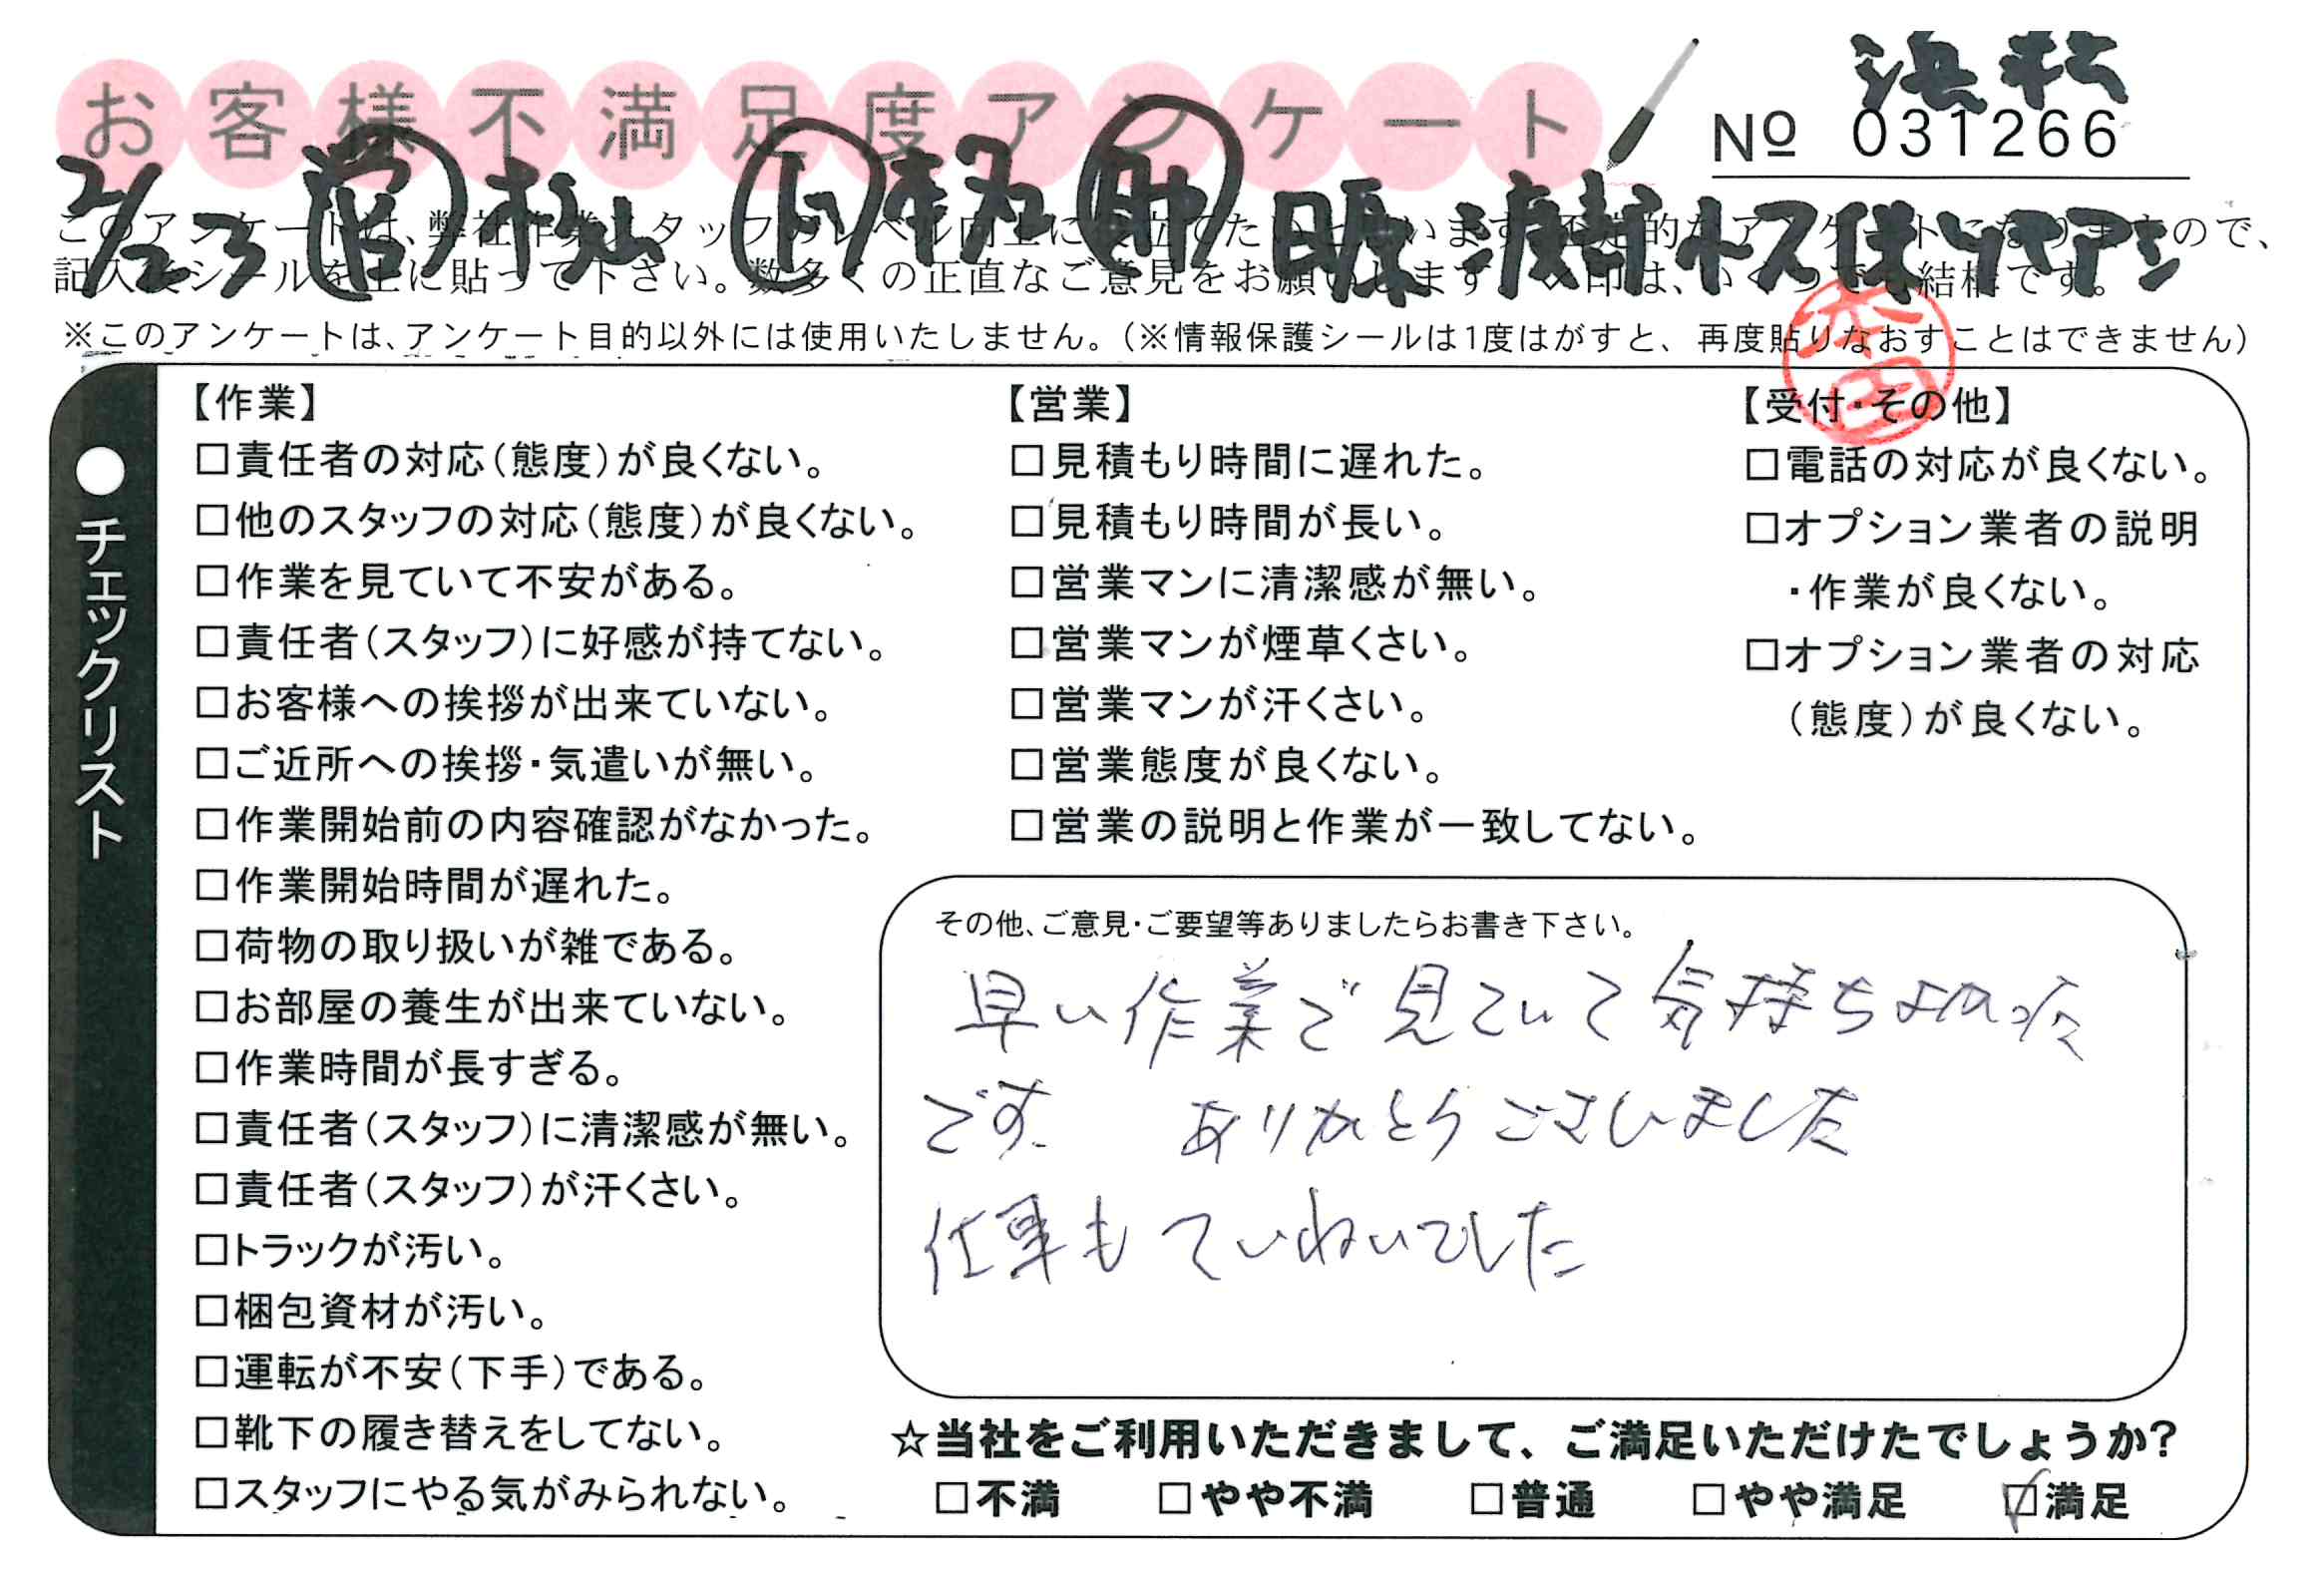 お客様不満足度アンケート
浜松
№ 031266
2/23 営 松山 ト 助
このアンケートは、弊社作業スタッフのレベル向上に役立てたいと思います。否定的なアンケートになりますので、
記入後シールを上に貼って下さい。数多くの正直なご意見をお願いします。×印は、いくつでも結構です。
※このアンケートは、アンケート目的以外には使用いたしません。（※情報保護シールは1度はがすと、再度貼りなおすことはできません）
本田
●チェックリスト
【作業】
□責任者の対応（態度）が良くない。
□他のスタッフの対応（態度）が良くない。
□作業を見ていて不安がある。
□責任者（スタッフ）に好感が持てない。
□お客様への挨拶が出来ていない。
□ご近所への挨拶・気遣いが無い。
□作業開始前の内容確認がなかった。
□作業開始時間が遅れた。
□荷物の取り扱いが雑である。
□お部屋の養生が出来ていない。
□作業時間が長すぎる。
□責任者（スタッフ）に清潔感が無い。
□責任者（スタッフ）が汗くさい。
□トラックが汚い。
□梱包資材が汚い。
□運転が不安（下手）である。
□靴下の履き替えをしてない。
□スタッフにやる気がみられない。
【営業】
□見積もり時間に遅れた。
□見積もり時間が長い。
□営業マンに清潔感が無い。
□営業マンが煙草くさい。
□営業マンが汗くさい。
□営業態度が良くない。
□営業の説明と作業が一致してない。
【受付・その他】
□電話の対応が良くない。
□オプション業者の説明
・作業が良くない。
□オプション業者の対応
（態度）が良くない。
その他、ご意見・ご要望等ありましたらお書き下さい。
早い作業で見ていて気持ちよかった
です。 ありがとうございました
仕事もていねいでした
☆当社をご利用いただきまして、ご満足いただけたでしょうか?
□不満 □やや不満 □普通 □やや満足 ☑満足